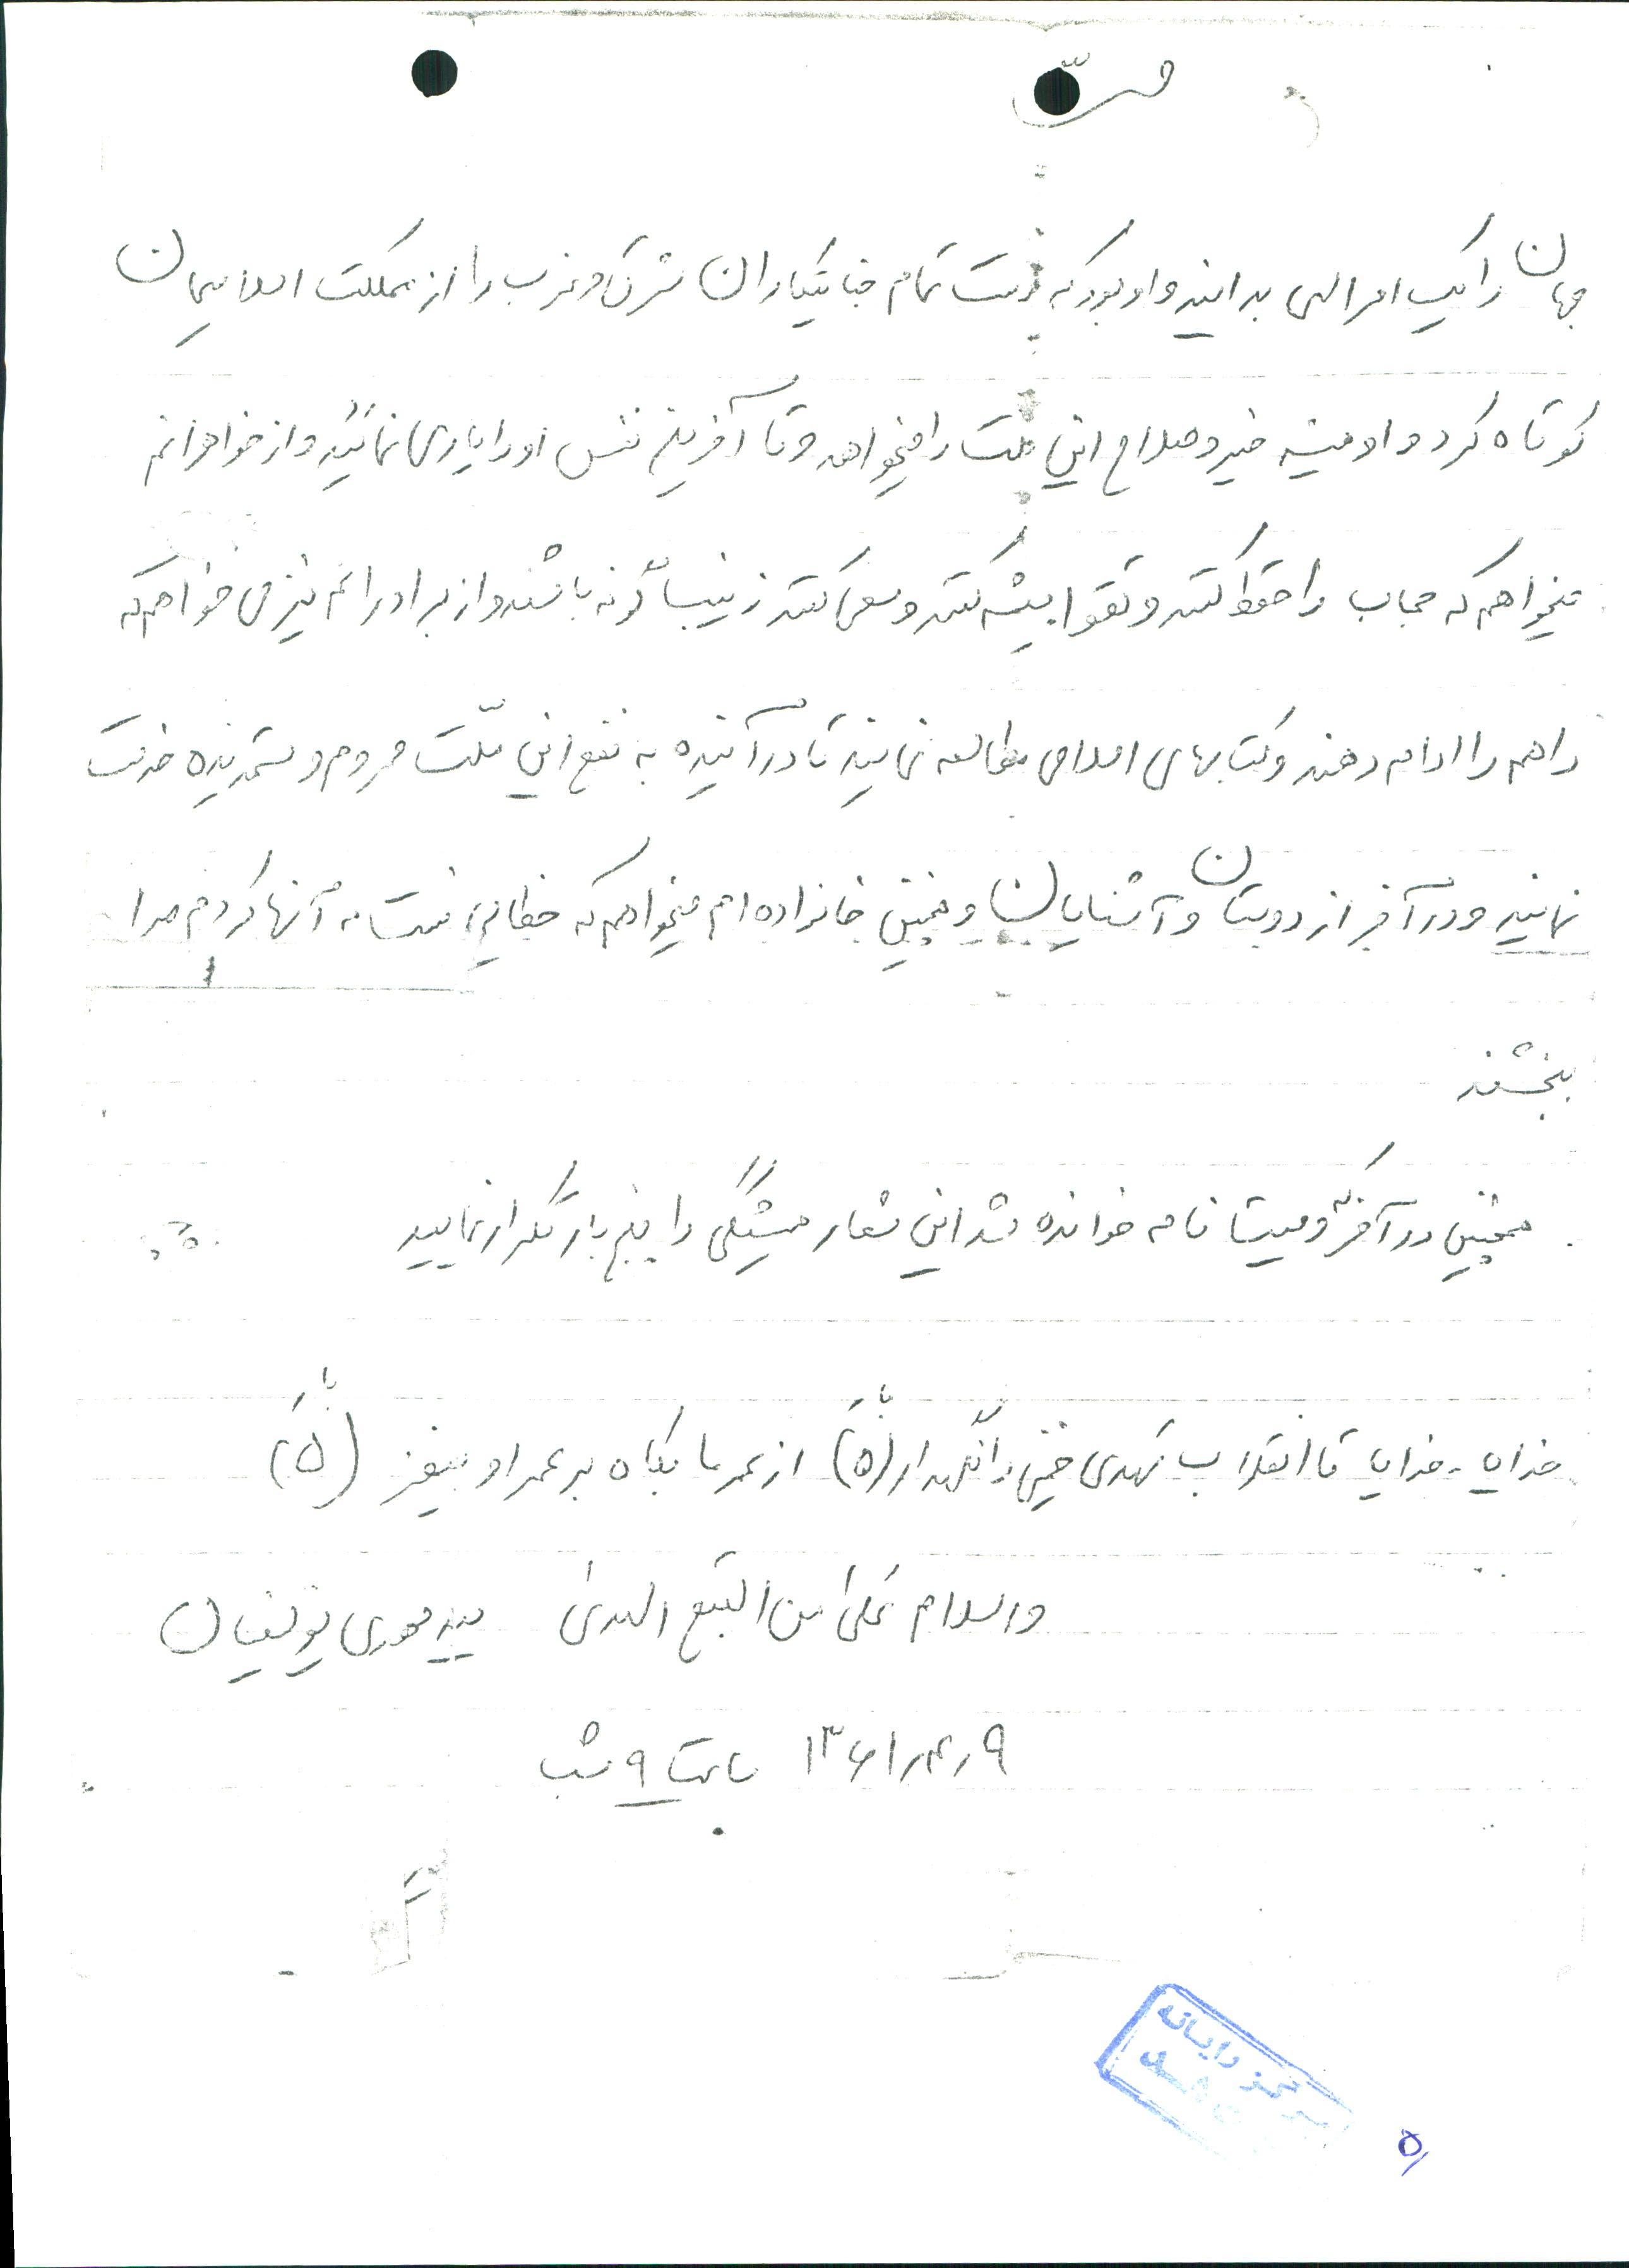 جهان را یک امر الهی بدانید و او بود که دست تمام جنایتکاران شرق و غرب را از مملکت اسلامیمان
کوتاه کرد و او همیشه خیر و صلاح این ملت را میخواهد و تا آخرین نفس او را یاری نمائید و از خواهرانم
میخواهم که حجاب را حفظ کنند و تقوا پیشه کنند و سعی کنند زینب گونه باشند و از برادرانم نیز می خواهم که
راهم را ادامه دهند و کتابهای اسلامی مطالعه نمایند تا در آینده به نفع این ملّت محروم و ستمدیده خدمت
نمایند و در آخر از دوستان و آشنایان و همچنین خانواده ام میخواهم که خطایی نسبت به آنها کردم مرا
ببخشند
همچنین در آخر که وصیت نامه خوانده شد این شعار همیشگی را پنج بار تکرار نمایید
خدایا - خدایا تا انقلاب مهدی خمینی را نگهدار (۵ بار) از عمر ما بکاه بر عمر او بیفز (۵ بار)
والسلام علی من اتبع الهدی سید مهدی یوسفیان
۹ر۴ر۱۳۶۱ ساعت ۹ شب
مرکز رایانه
۵